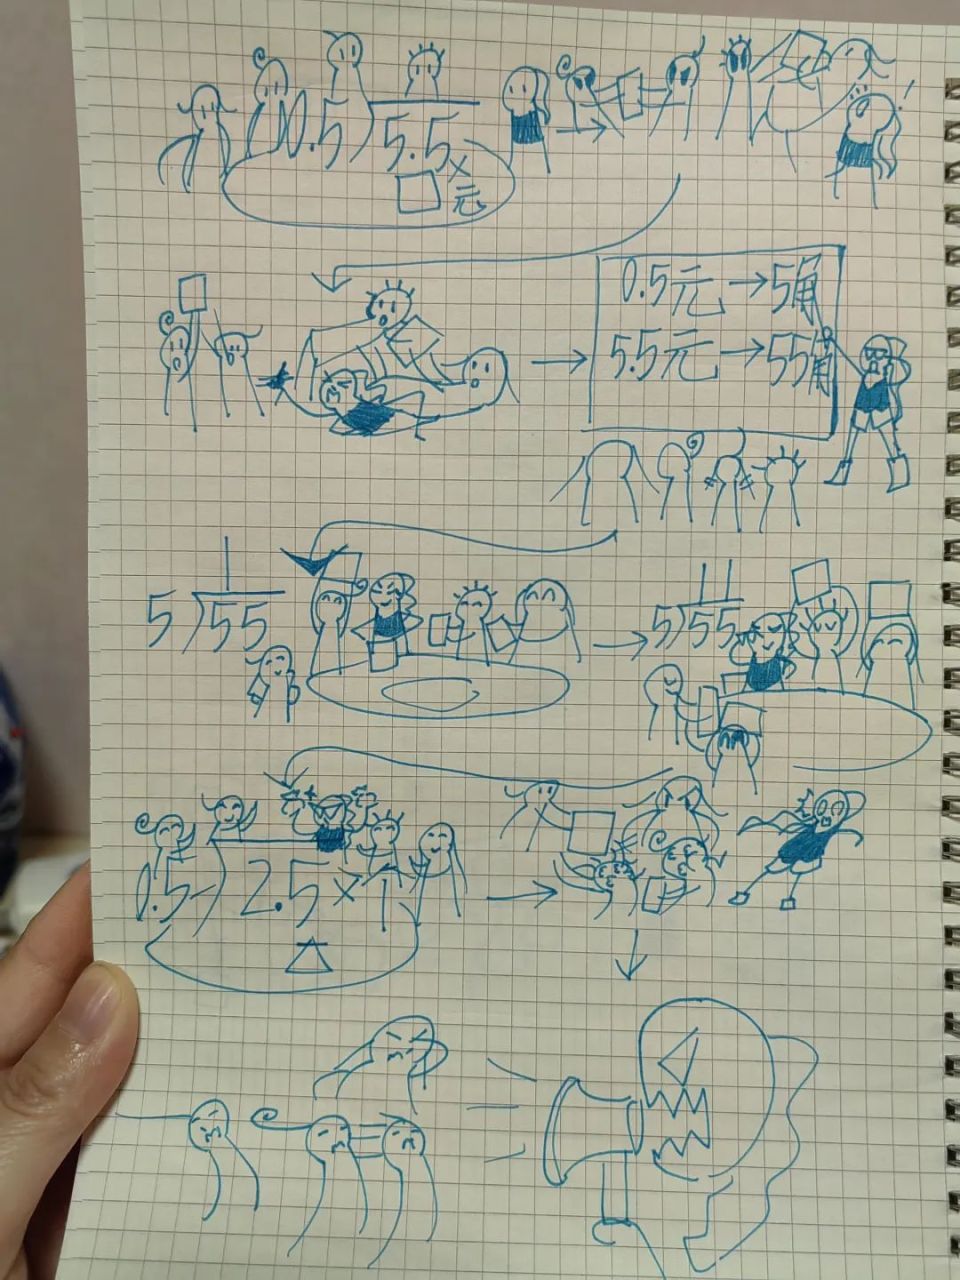 0.5)5.5×
元
!
0.5元→5角
5.5元→55角
1
5)55
11
5)55
0.5)2.5×1